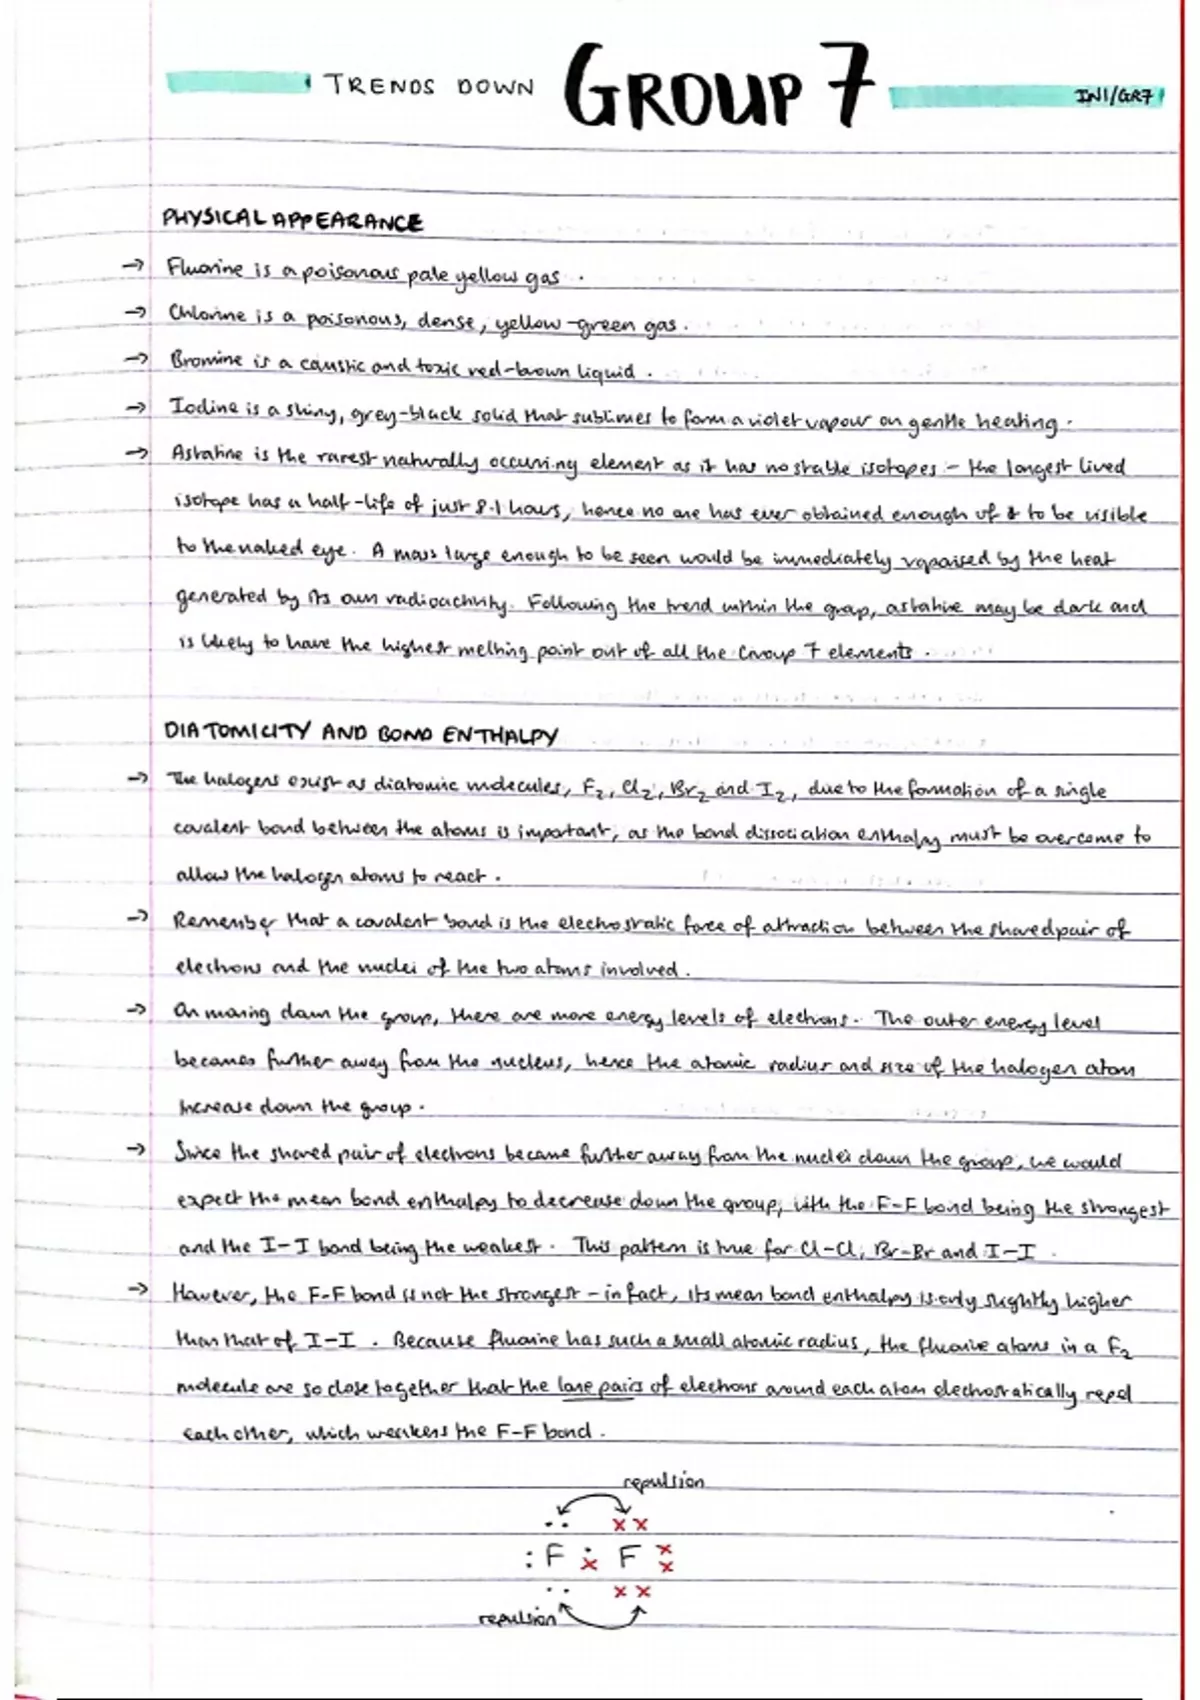 TRENDS DOWN GROUP 7 IN1/GR7
PHYSICAL APPEARANCE
→ Fluorine is a poisonous pale yellow gas.
→ Chlorine is a poisonous, dense, yellow-green gas.
→ Bromine is a caustic and toxic red-brown liquid.
→ Iodine is a shiny, grey-black solid that sublimes to form a violet vapour on gentle heating.
→ Astatine is the rarest naturally occurring element as it has no stable isotopes - the longest lived
isotope has a half-life of just 8.1 hours, hence no one has ever obtained enough of it to be visible
to the naked eye. A mass large enough to be seen would be immediately vaporised by the heat
generated by its own radioactivity. Following the trend within the group, astatine may be dark and
is likely to have the highest melting point out of all the Group 7 elements.
DIATOMICITY AND BOND ENTHALPY
→ The halogens exist as diatomic molecules, F₂, Cl₂, Br₂ and I₂, due to the formation of a single
covalent bond between the atoms is important, as the bond dissociation enthalpy must be overcome to
allow the halogen atoms to react.
→ Remember that a covalent bond is the electrostatic force of attraction between the shared pair of
electrons and the nuclei of the two atoms involved.
→ On moving down the group, there are more energy levels of electrons. The outer energy level
becomes further away from the nucleus, hence the atomic radius and size of the halogen atom
increase down the group.
→ Since the shared pair of electrons become further away from the nuclei down the group, we would
expect the mean bond enthalpy to decrease down the group, with the F-F bond being the strongest
and the I-I bond being the weakest. This pattern is true for Cl-Cl, Br-Br and I-I.
→ However, the F-F bond is not the strongest - in fact, its mean bond enthalpy is only slightly higher
than that of I-I. Because fluorine has such a small atomic radius, the fluorine atoms in a F₂
molecule are so close together that the lone pairs of electrons around each atom electrostatically repel
each other, which weakens the F-F bond.
repulsion
F F
repulsion